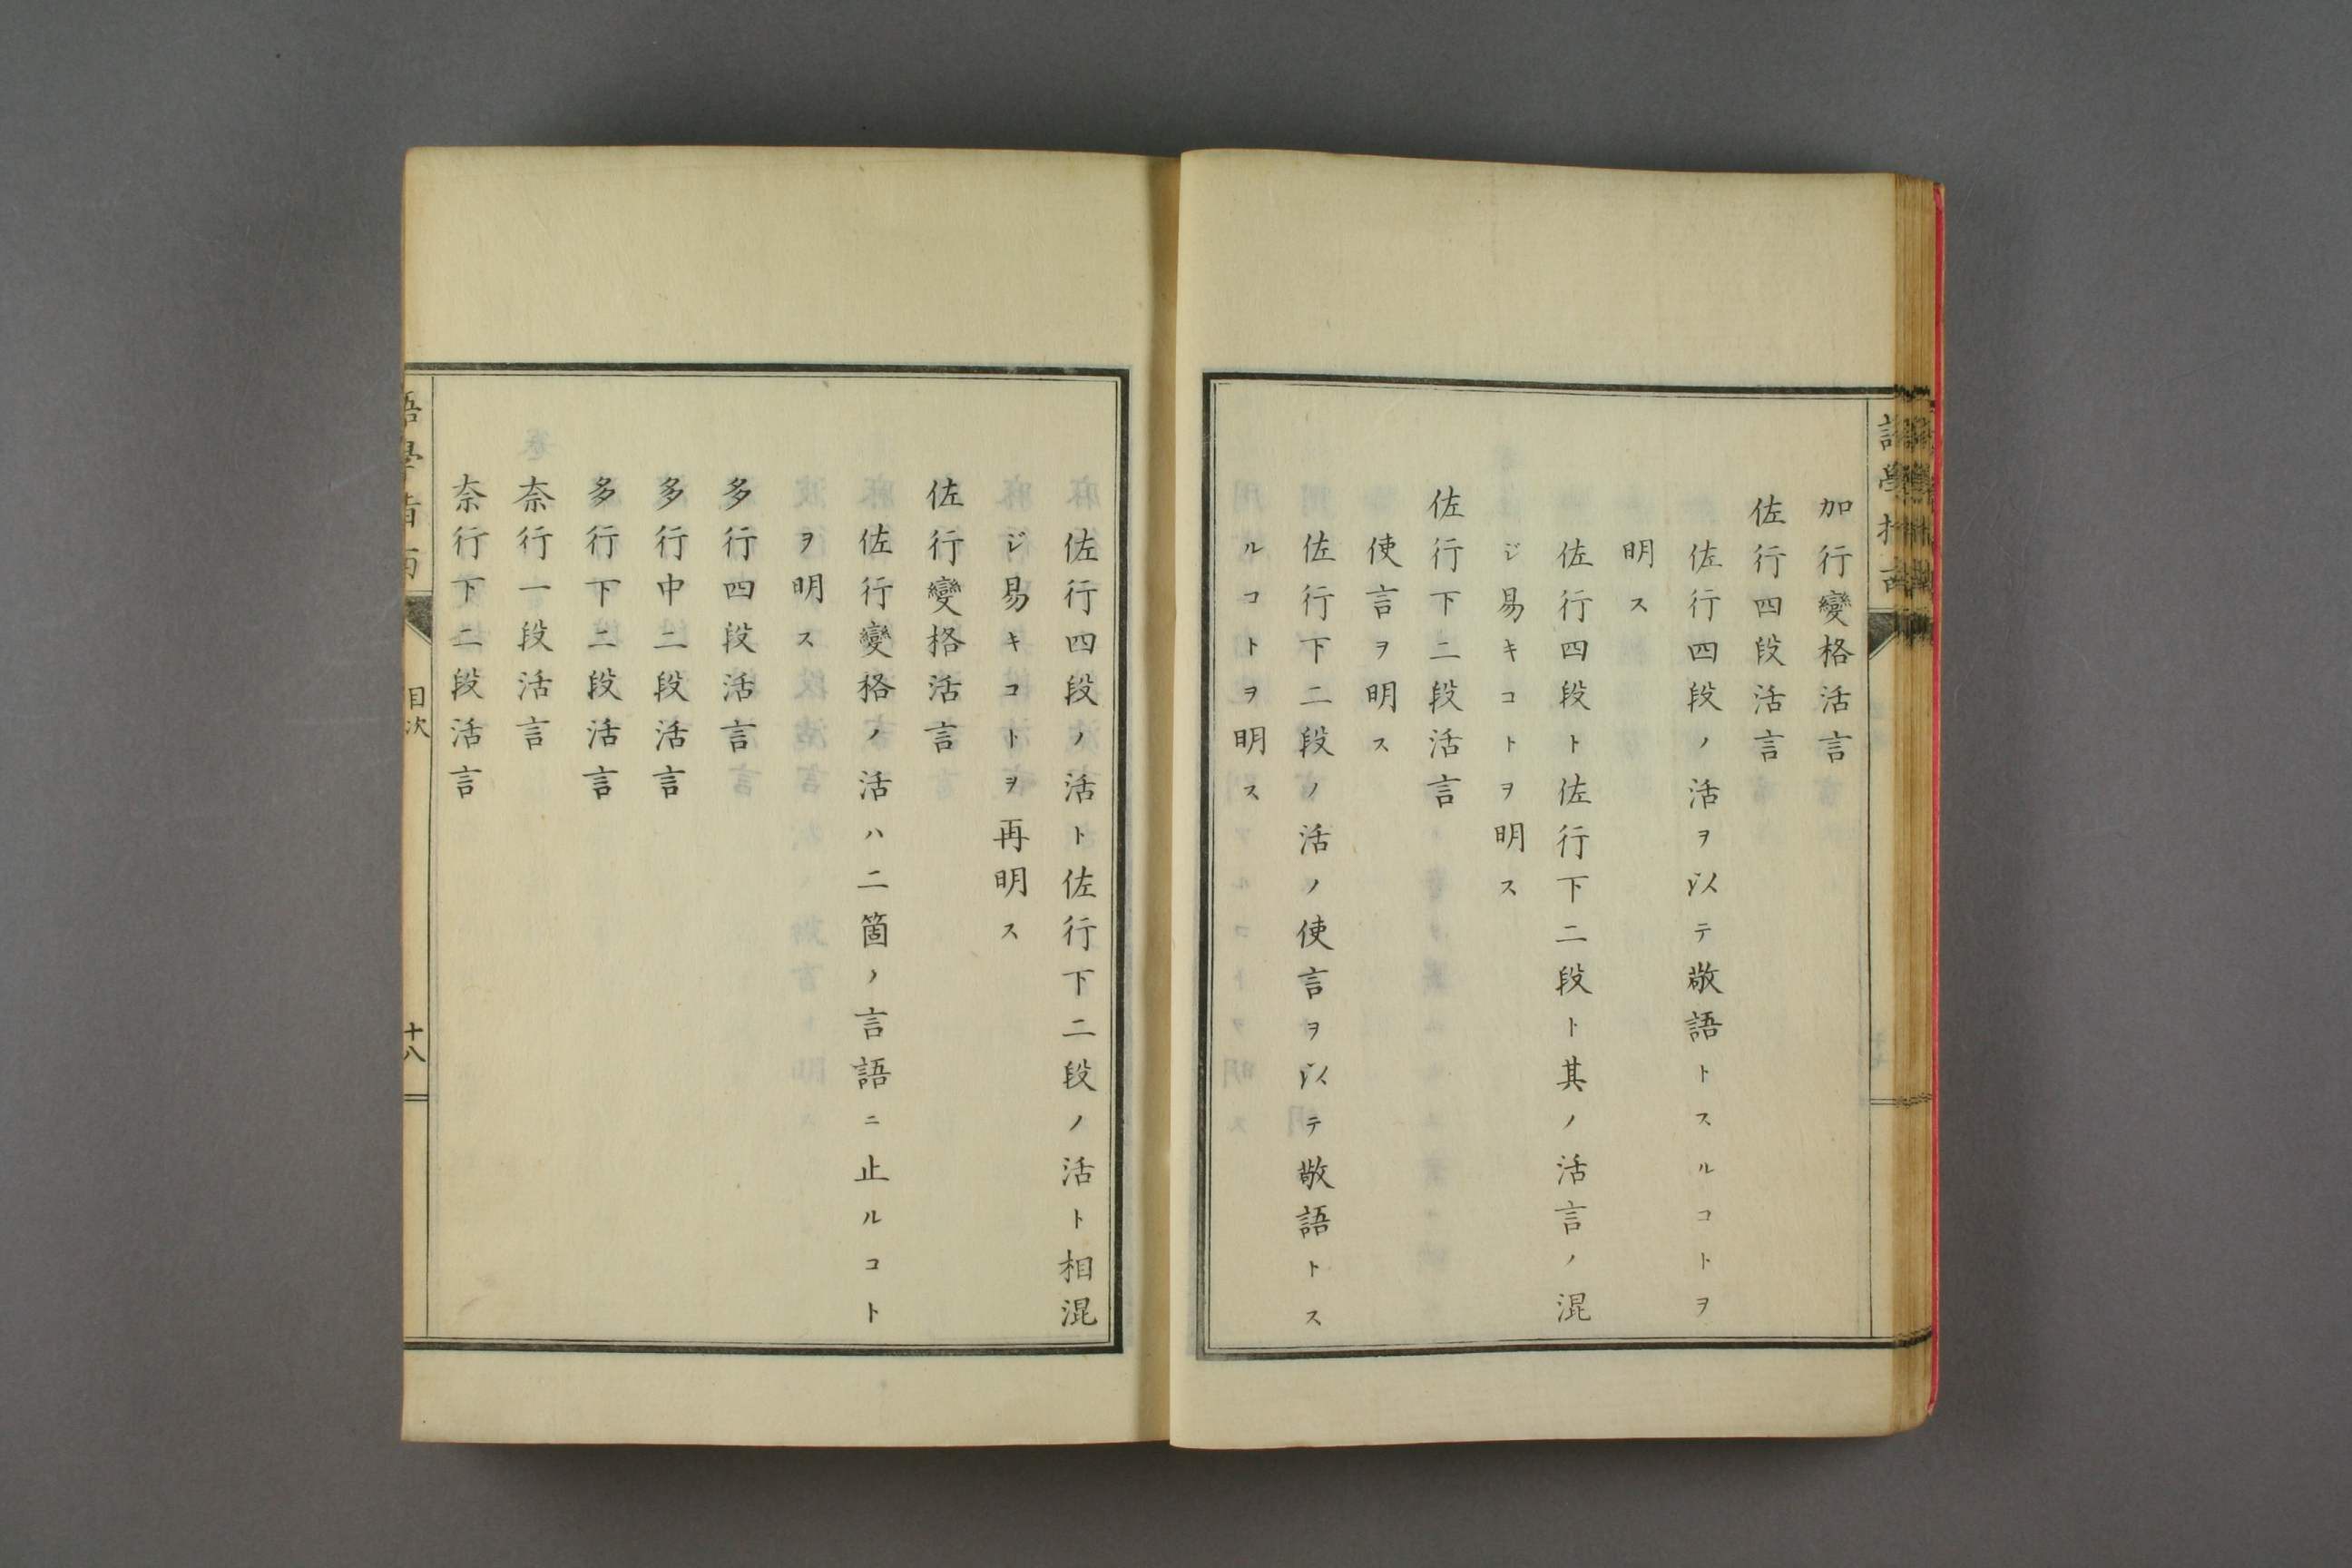 加行變格活言
佐行四段活言
佐行四段ノ活ヲ以テ敬語トスルコトヲ
明ス
佐行四段ト佐行下二段ト其ノ活言ノ混
ジ易キコトヲ明ス
佐行下二段活言
使言ヲ明ス
佐行下二段ノ活ノ使言ヲ以テ敬語トス
ルコトヲ明ス
佐行四段ノ活ト佐行下二段ノ活ト相混
ジ易キコトヲ再明ス
佐行變格活言
佐行變格ノ活ハ二箇ノ言語ニ止ルコト
ヲ明ス
多行四段活言
多行中二段活言
多行下二段活言
奈行一段活言
奈行下二段活言
語學指南
目次
十八